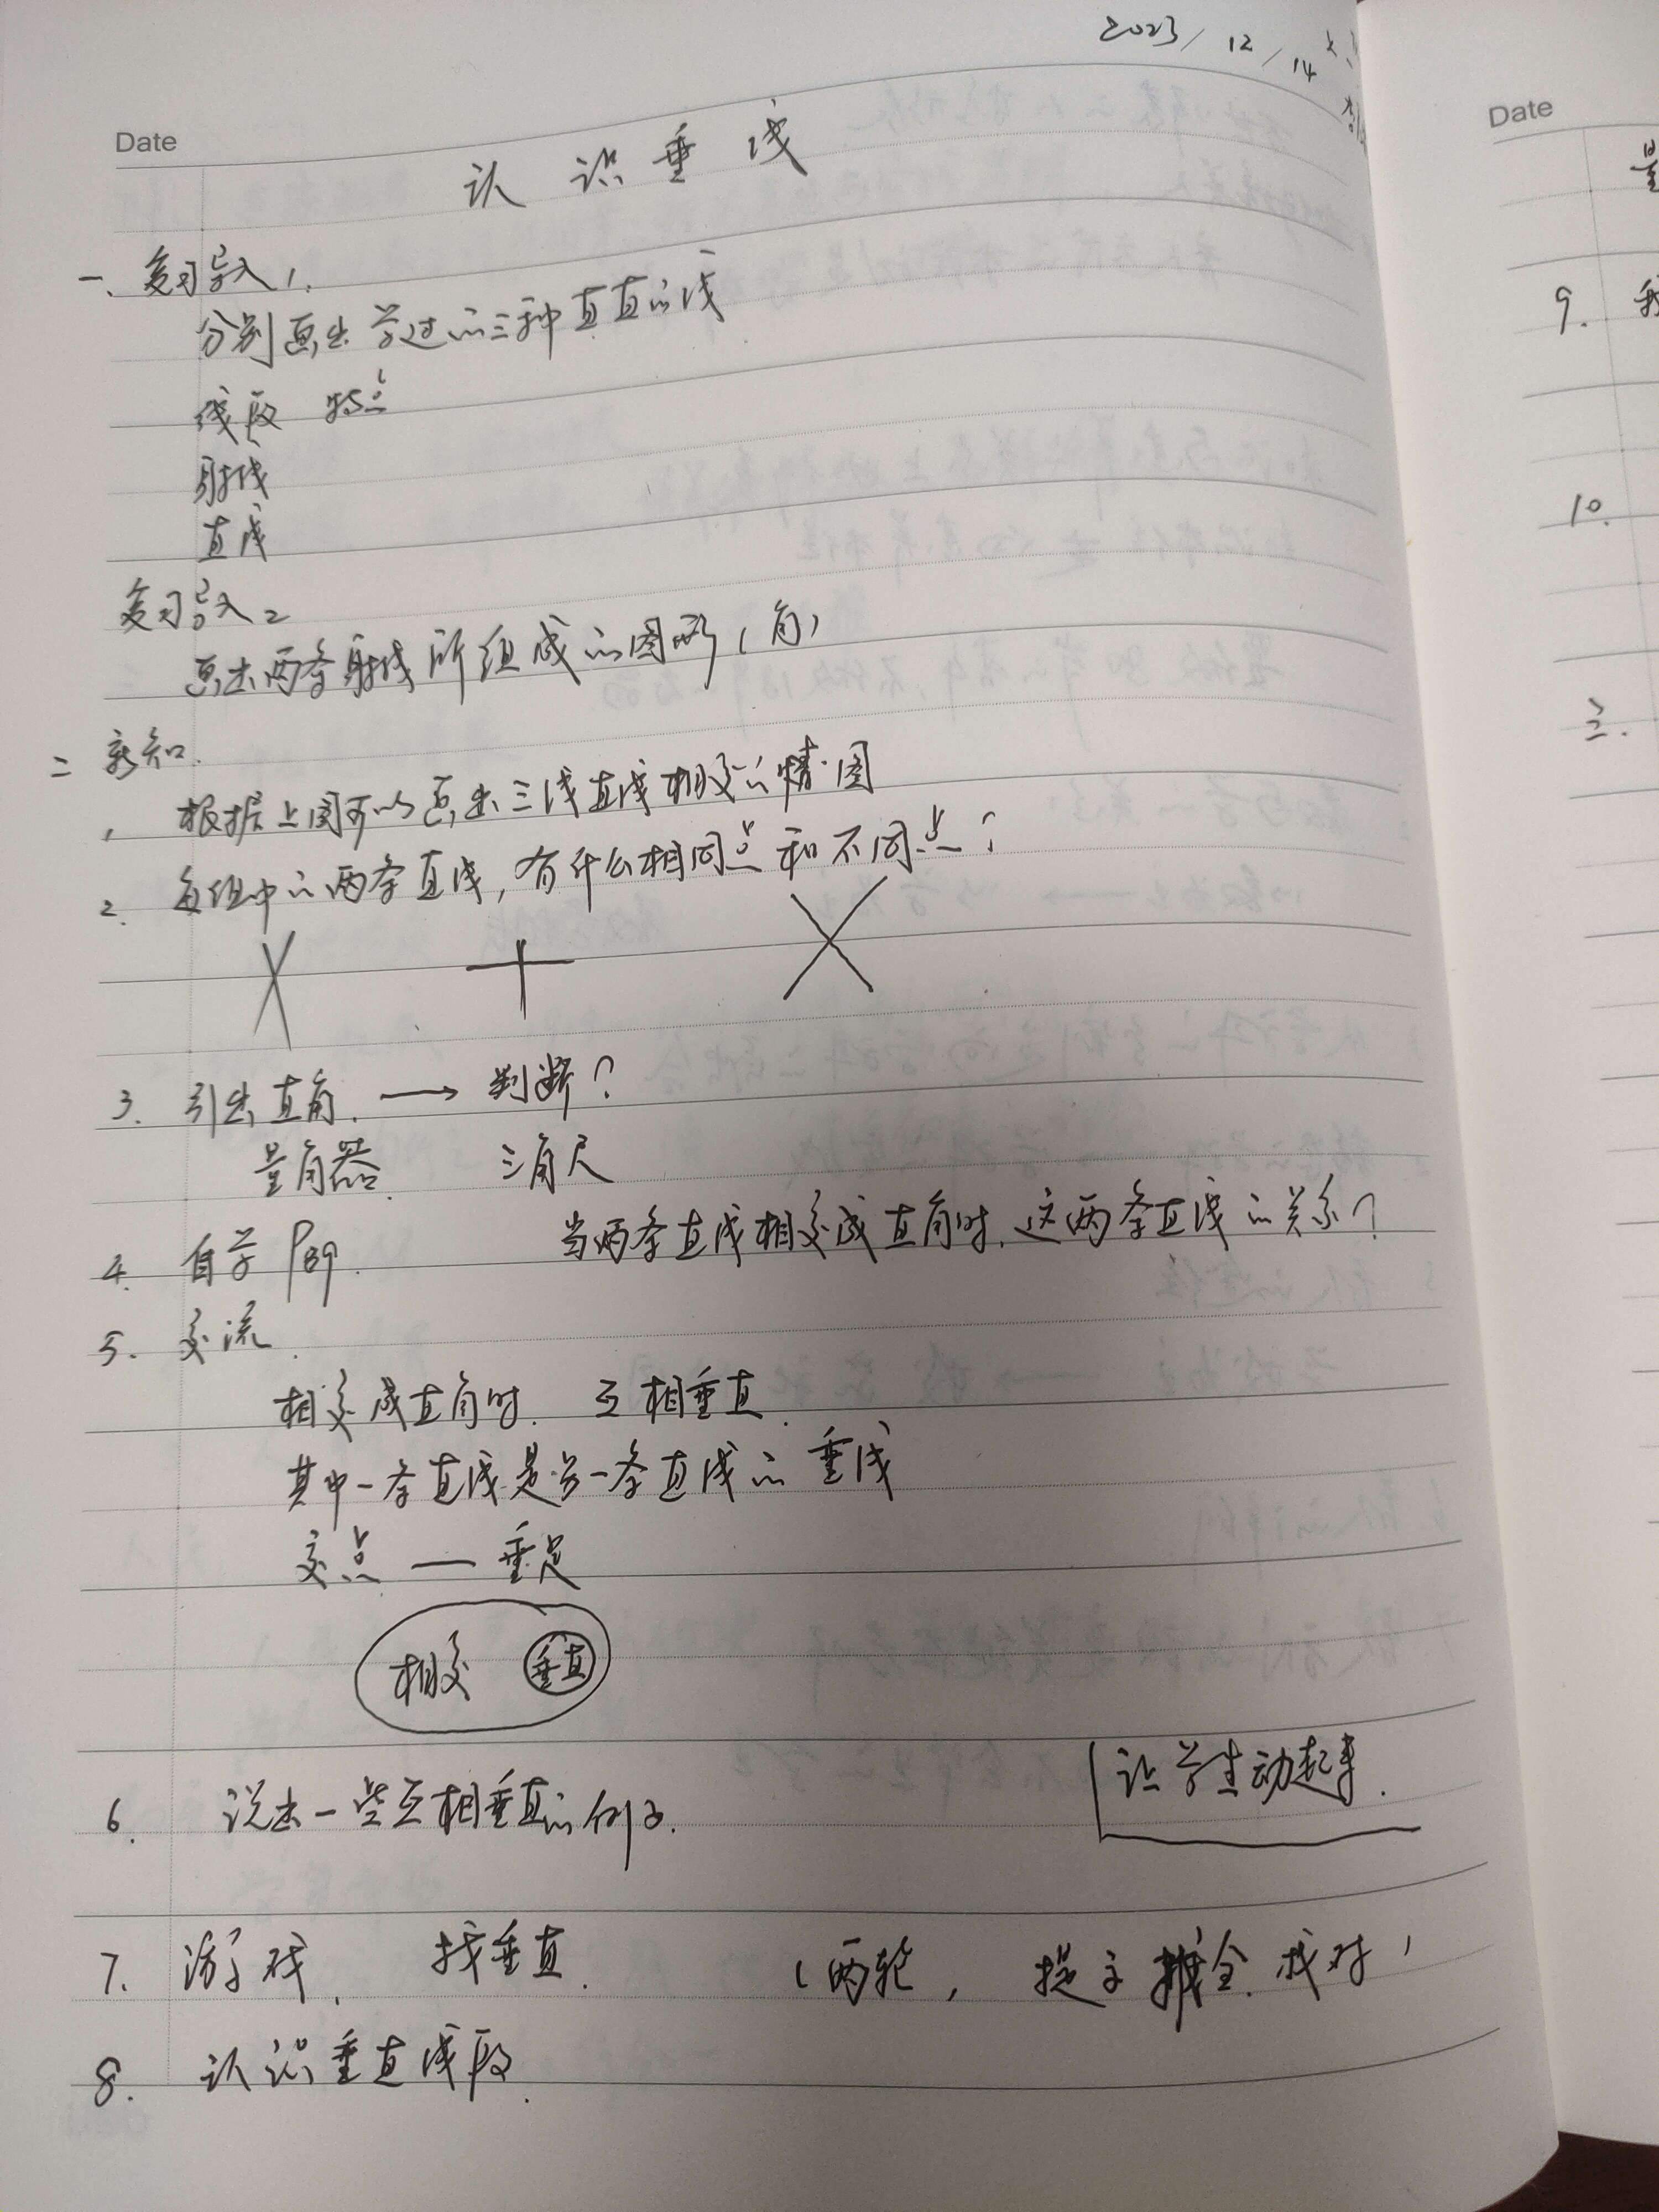 2023/12/14
Date
认识垂线
一、复习导入1.
分别画出学过的三种直直的线
线段 特点
射线
直线
复习导入2
画出两条射线所组成的图形(角)
二 新知.
1 根据上图可以画出三线直线相交的情图
2. 每组中的两条直线,有什么相同点和不同点?
3. 引出直角. → 判断?
量角器. 三角尺
4. 自学P89. 当两条直线相交成直角时.这两条直线的关系?
5. 交流.
相交成直角时. 互相垂直.
其中一条直线是另一条直线的垂线
交点 — 垂足
相交 垂直
让学生动起来.
6. 说出一些互相垂直的例子.
7. 游戏. 找垂直. (两轮, 提示 找全.找对)
8. 认识垂直线段.
Date
9. 我
10.
三.